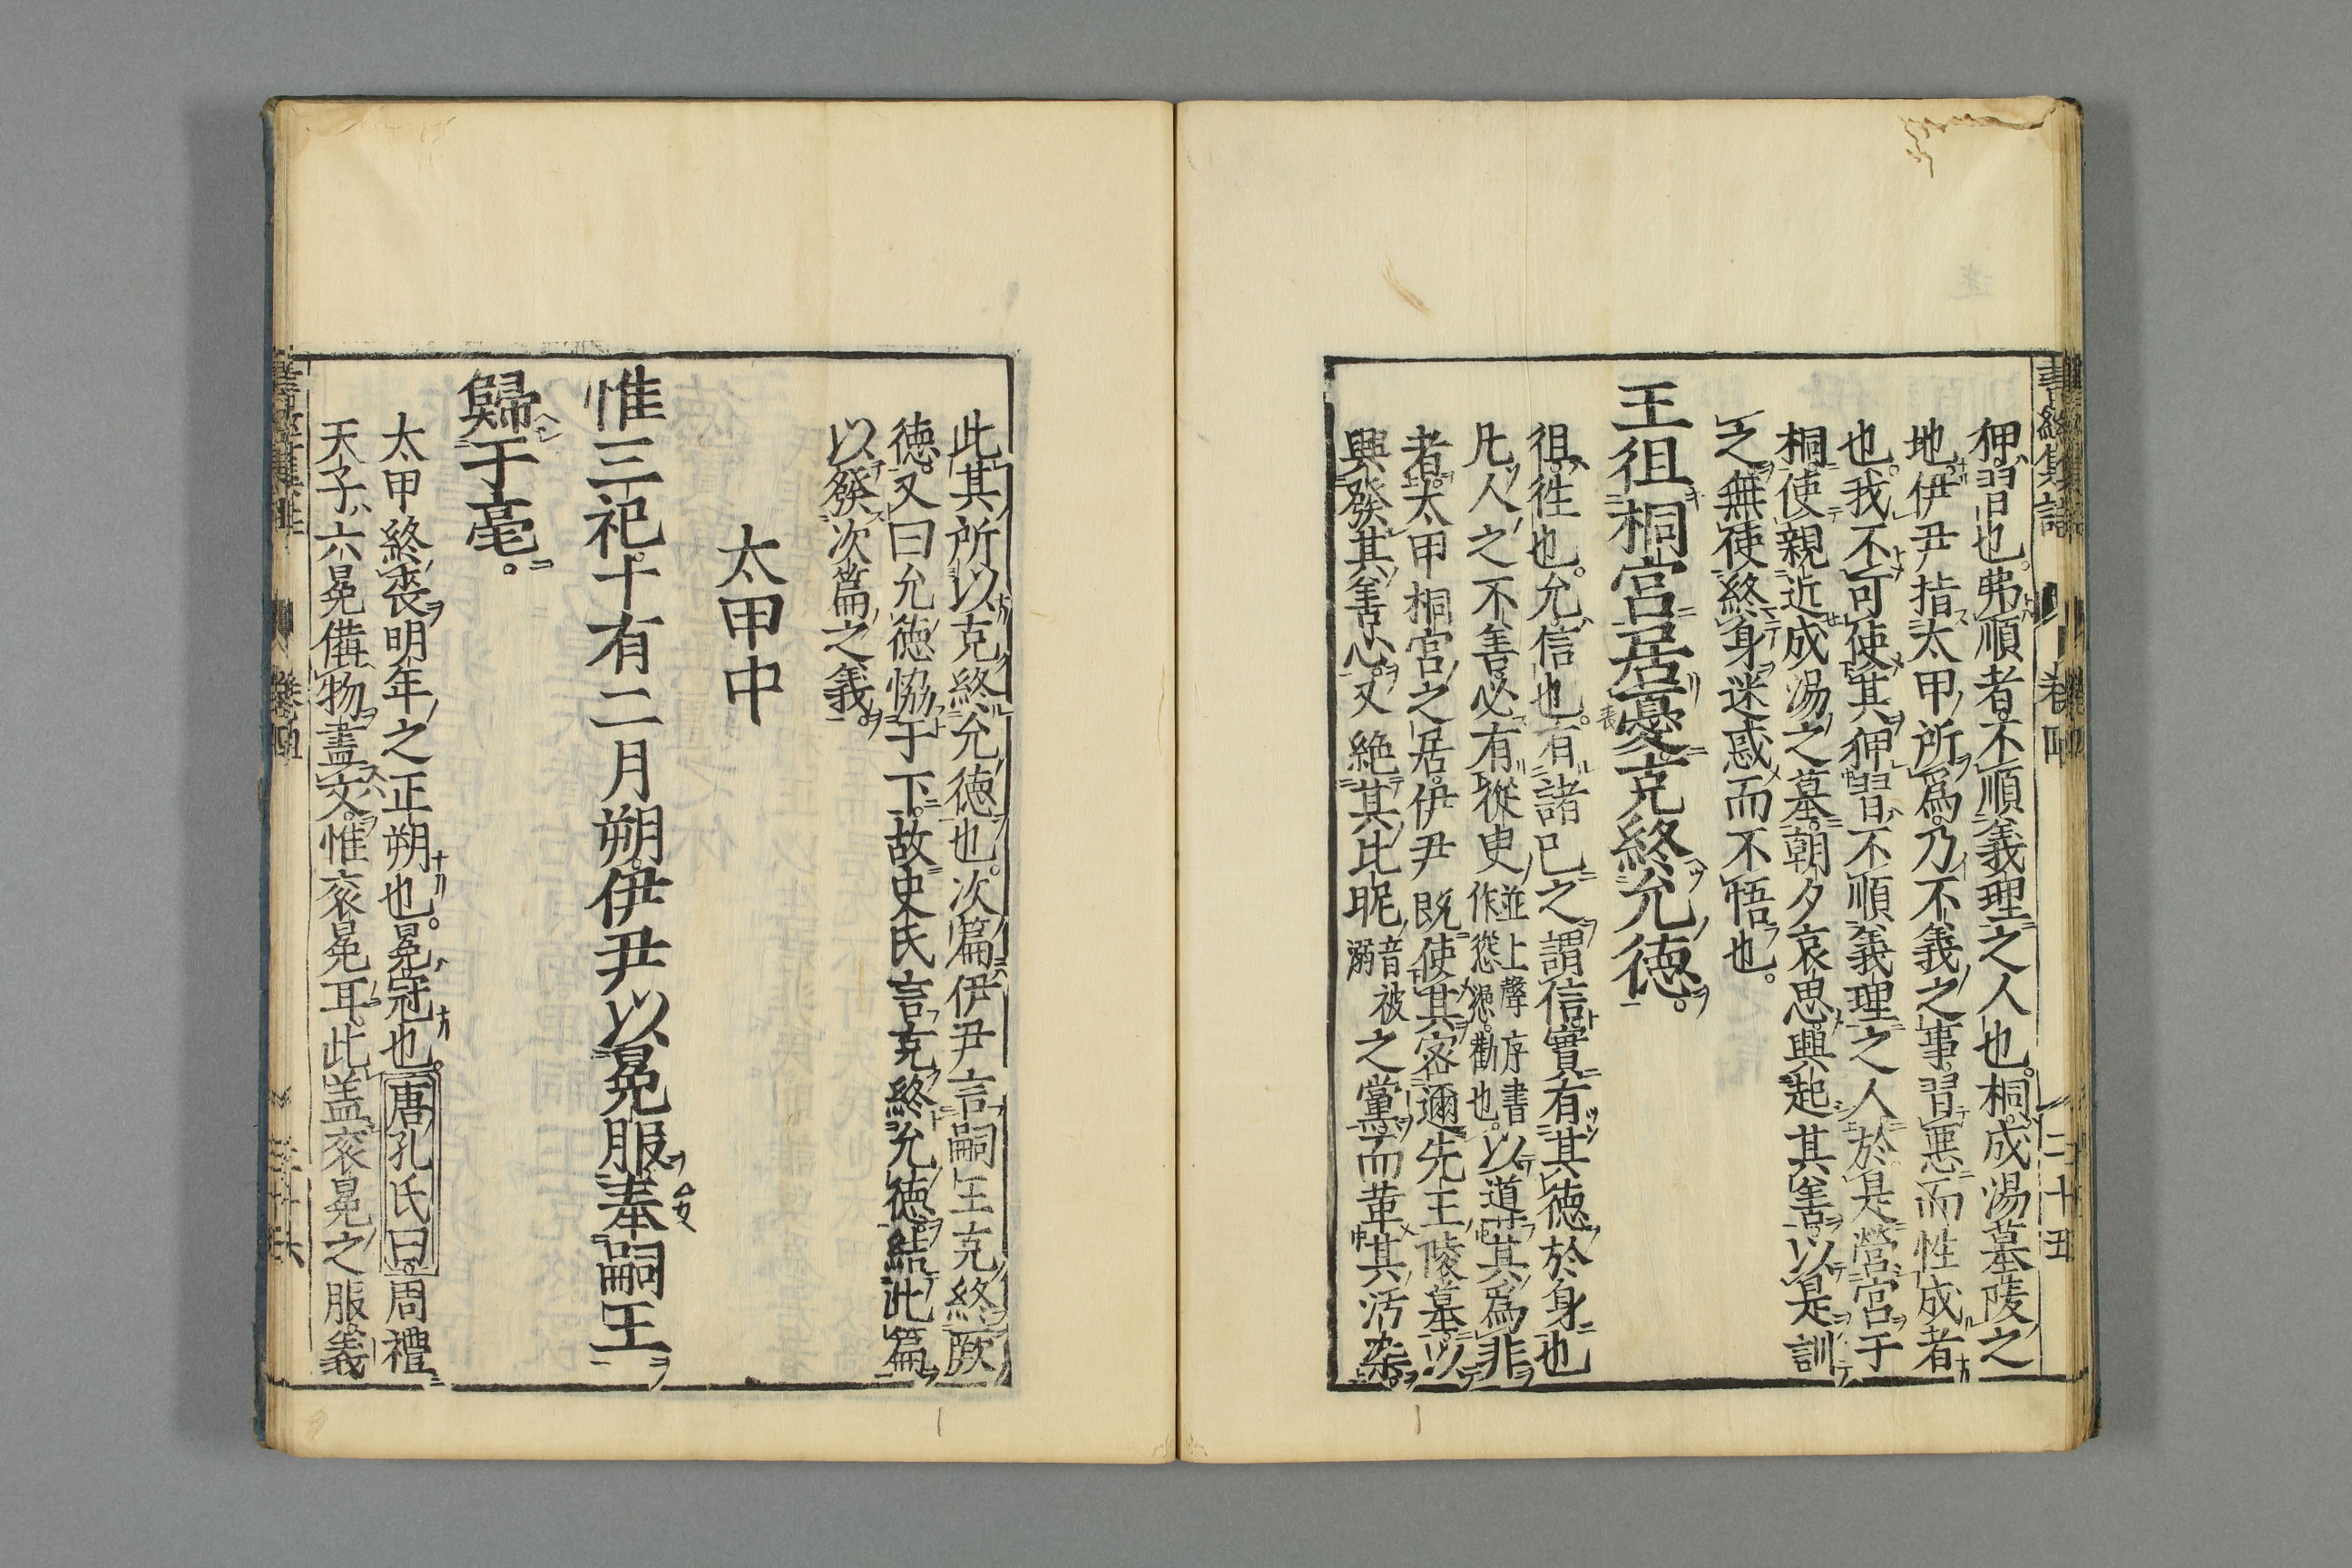 書經集註 卷四 二十五
狎習也。弗順者。不順義理之人也。桐。成湯墓陵之
地。伊尹指太甲所爲。乃不義之事。習惡而性成者
也。我不可使其狎習不順義理之人。於是營宮于
桐。使親近成湯之墓。朝夕哀思。興起其善。以是訓
之。無使終身迷惑而不悟也。
王徂桐宮居憂。克終允德。
徂。徃也。允。信也。有諸己之謂信。實有其德於身也
凡人之不善。必有從臾
並上聲序書
作慫慂。勸也。
以導其爲非
者。太甲桐宮之居。伊尹既使其密邇先王陵墓。以
興發其善心。又絕其比昵
音被
溺
之黨。而革其汚染。
此其所以克終允德也。次篇伊尹言嗣王克終厥
德。又曰允德協于下。故史氏言克終允德。結此篇
以發次篇之義。
太甲中
惟三祀十有二月朔。伊尹以冕服奉嗣王
歸于亳。
太甲終喪明年之正朔也。冕。冠也。唐孔氏曰。周禮
天子六冕。備物盡文。惟衮冕耳。此盖衮冕之服。義
書經集註 卷四